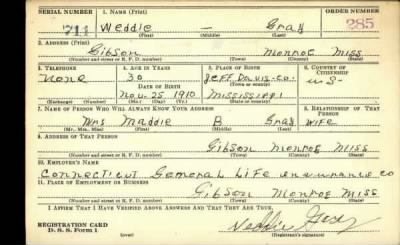 SERIAL NUMBER 1. NAME (Print) ORDER NUMBER
711 Weddie — Gray 285
(First) (Middle) (Last)
2. ADDRESS (Print)
Gibson Monroe Miss
(Number and street or R. F. D. number) (Town) (County) (State)
3. TELEPHONE 4. AGE IN YEARS 5. PLACE OF BIRTH 6. COUNTRY OF CITIZENSHIP
None 30 Jeff Davis-co. U-S-
DATE OF BIRTH (Town or county)
Nov. 25 1910 Mississippi
(Exchange) (Number) (Mo.) (Day) (Yr.) (State or country)
7. NAME OF PERSON WHO WILL ALWAYS KNOW YOUR ADDRESS 8. RELATIONSHIP OF THAT PERSON
Mrs Maddie B Gray wife
(Mr., Mrs., Miss) (First) (Middle) (Last)
9. ADDRESS OF THAT PERSON
Gibson Monroe Miss
(Number and street or R. F. D. number) (Town) (County) (State)
10. EMPLOYER'S NAME
Connecticut General Life insurance co
11. PLACE OF EMPLOYMENT OR BUSINESS
Gibson Monroe Miss
(Number and street or R. F. D. number) (Town) (County) (State)
I AFFIRM THAT I HAVE VERIFIED ABOVE ANSWERS AND THAT THEY ARE TRUE.
REGISTRATION CARD
D. S. S. Form 1 Weddie Gray
(Registrant's signature)